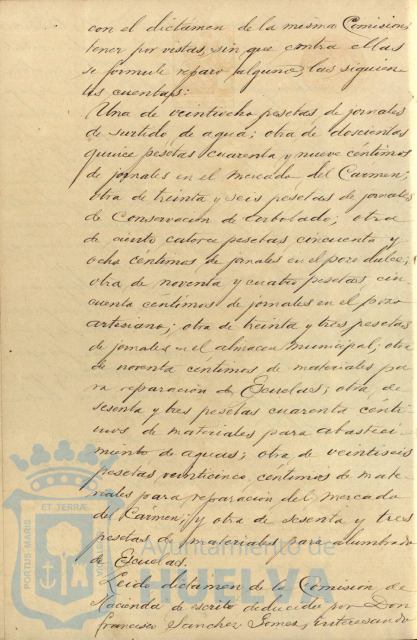 con el dictámen de la misma Comision,
tener por vistas, sin que contra ellas
se formule reparo alguno, las siguien
tes cuentas:
Una de veintiocho pesetas, de jornales
de surtido de agua; otra de doscientas
quince pesetas cuarenta y nueve céntimos
de jornales en el Mercado del Carmen;
otra de treinta y seis pesetas de jornales
de Conservacion de arbolado; otra
de ciento catorce pesetas cincuenta y
ocho céntimos de jornales en el pozo dulce;
otra de noventa y cuatro pesetas cin
cuenta céntimos de jornales en el pozo
artesiano; otra de treinta y tres pesetas
de jornales en el almacen municipal; otra
de noventa céntimos de materiales pa
ra reparacion de Escuelas; otra de
sesenta y tres pesetas cuarenta cénti
mos de materiales para abasteci
miento de aguas; otra de veintiseis
pesetas, veinticinco céntimos de mate
riales para reparacion del mercado
del Cármen; y otra de sesenta y tres
pesetas de materiales para alumbrado
de Escuelas.
Leido dictámen de la Comision de
Hacienda de escrito deducido por Don
Francisco Sanchez Gomez, interesando
PORTUS MARIS ET TERRÆ
Ayuntamiento de
HUELVA